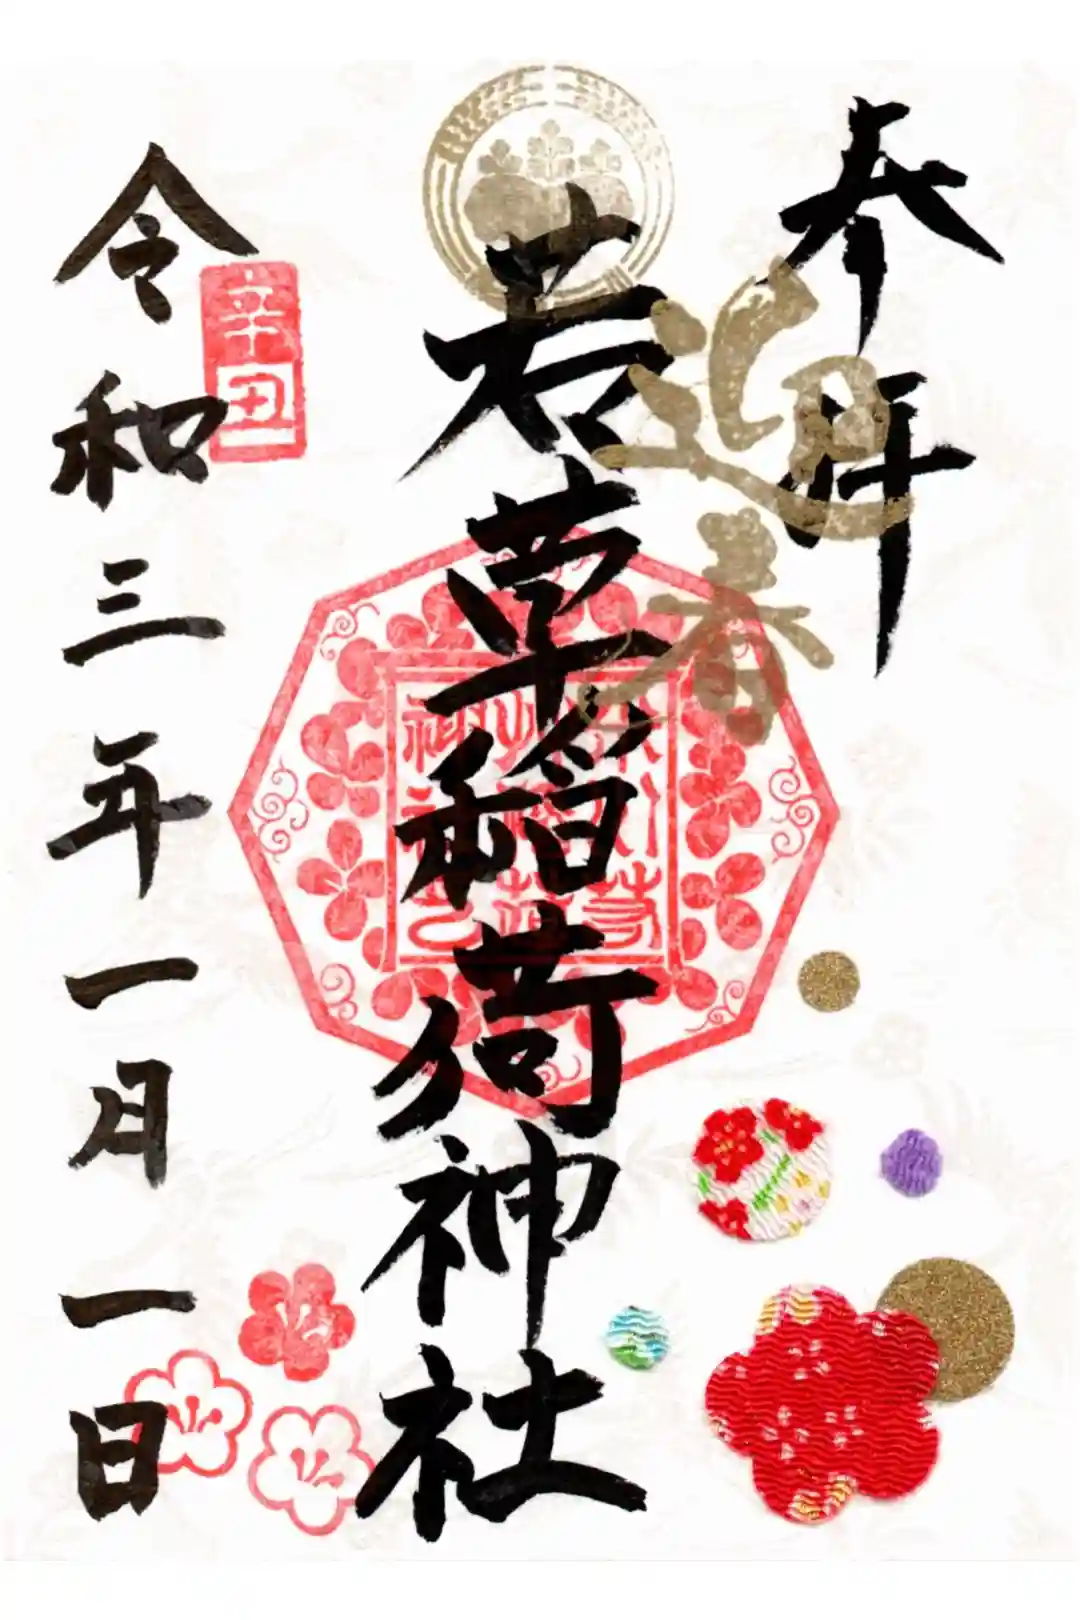 奉拝
迎春
若草稲荷神社
令和三年一月一日
辛丑